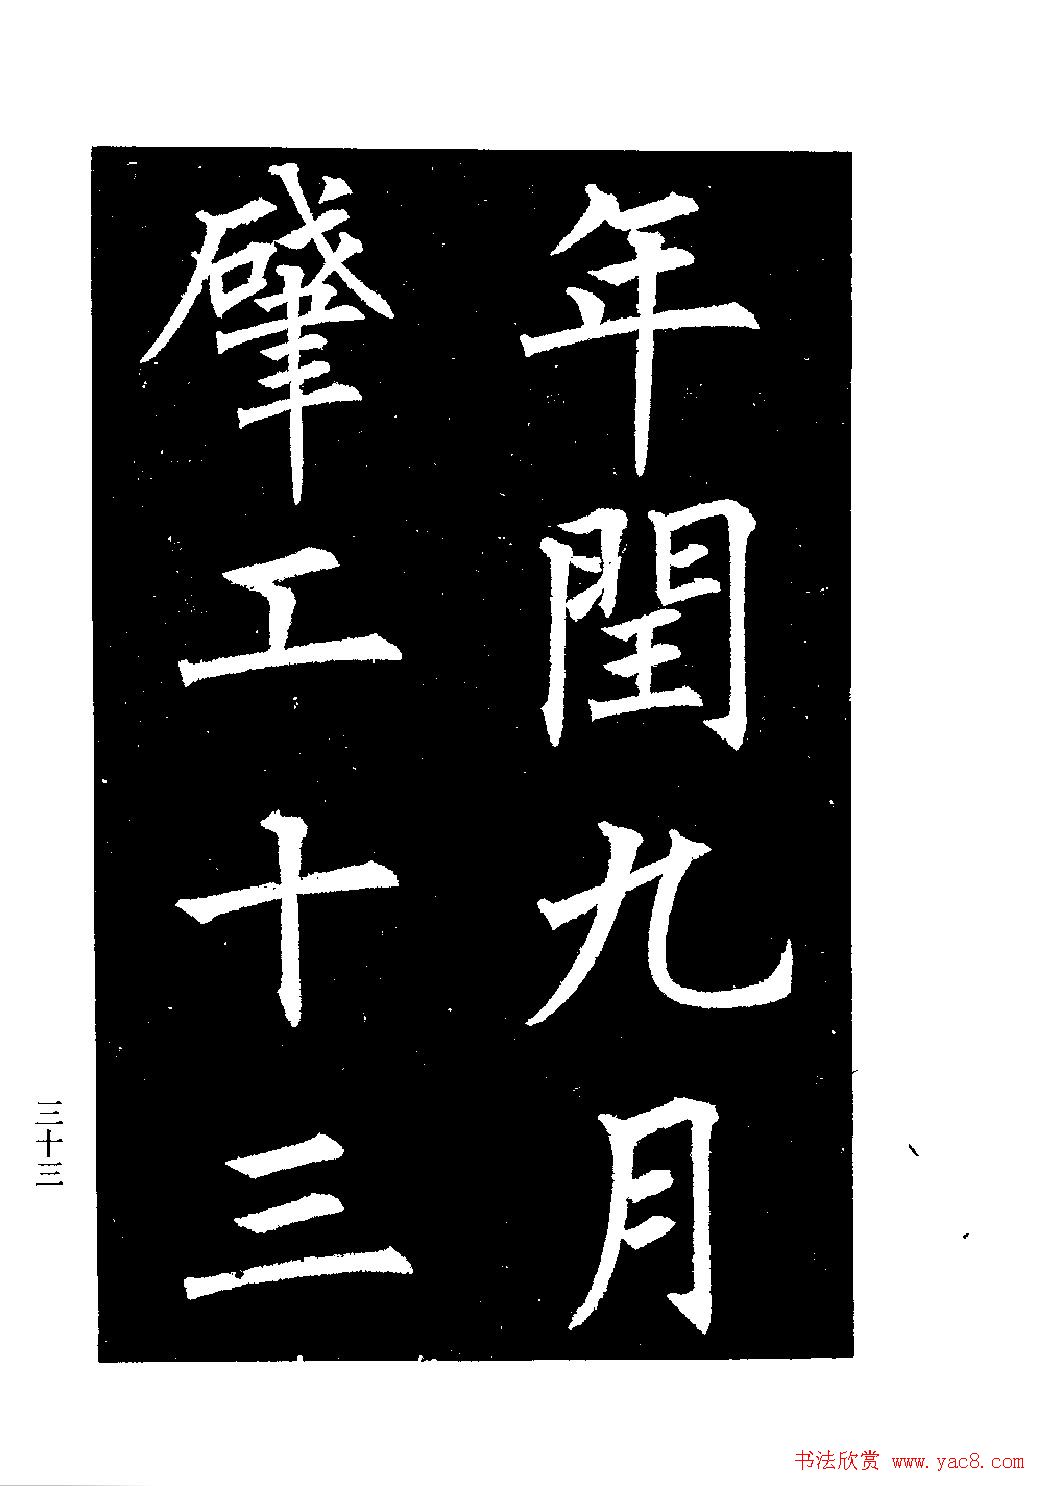 年閏九月
肇工十三
三十三
书法欣赏 www.yac8.com